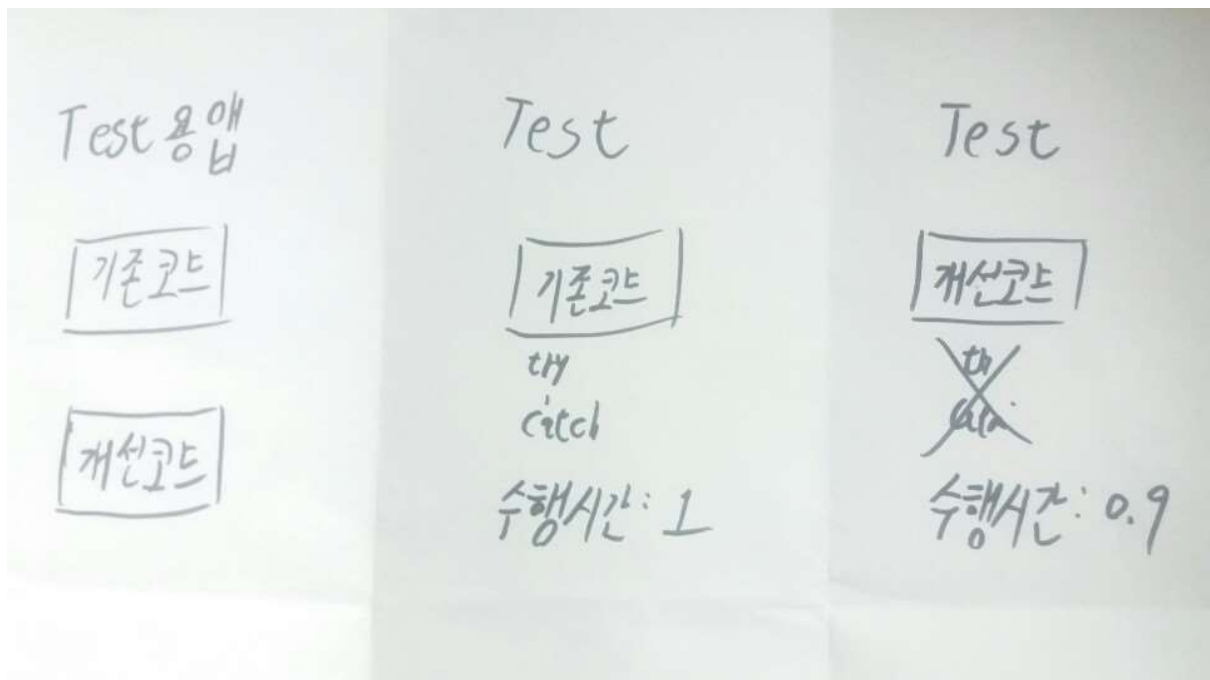 Test용앱
기존코드
개선코드
Test
기존코드
try
catch
수행시간: 1
Test
개선코드
수행시간: 0.9